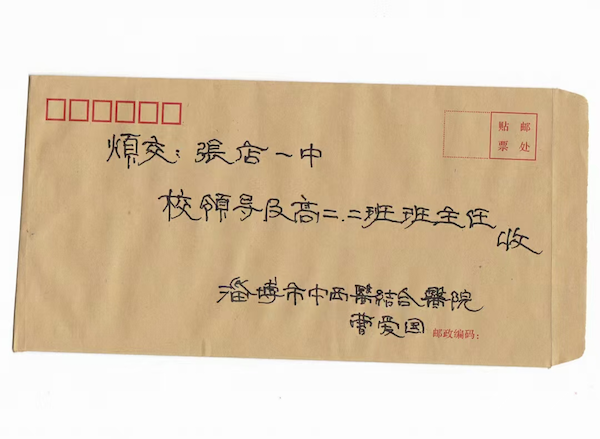 贴 邮
票 处
煩交：張店一中
校領导及高二.二班班主任
收
淄博市中西醫结合醫院
曹爱国
邮政编码：